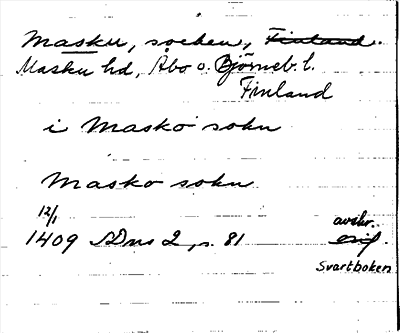 Masku, socken, Finland.
Masku hd, Åbo o. Björneb. l.
Finland
i Masko sokn
Masko sokn
12/1
1409 SDns 2, s. 81 avskr.
orig.
Svartboken